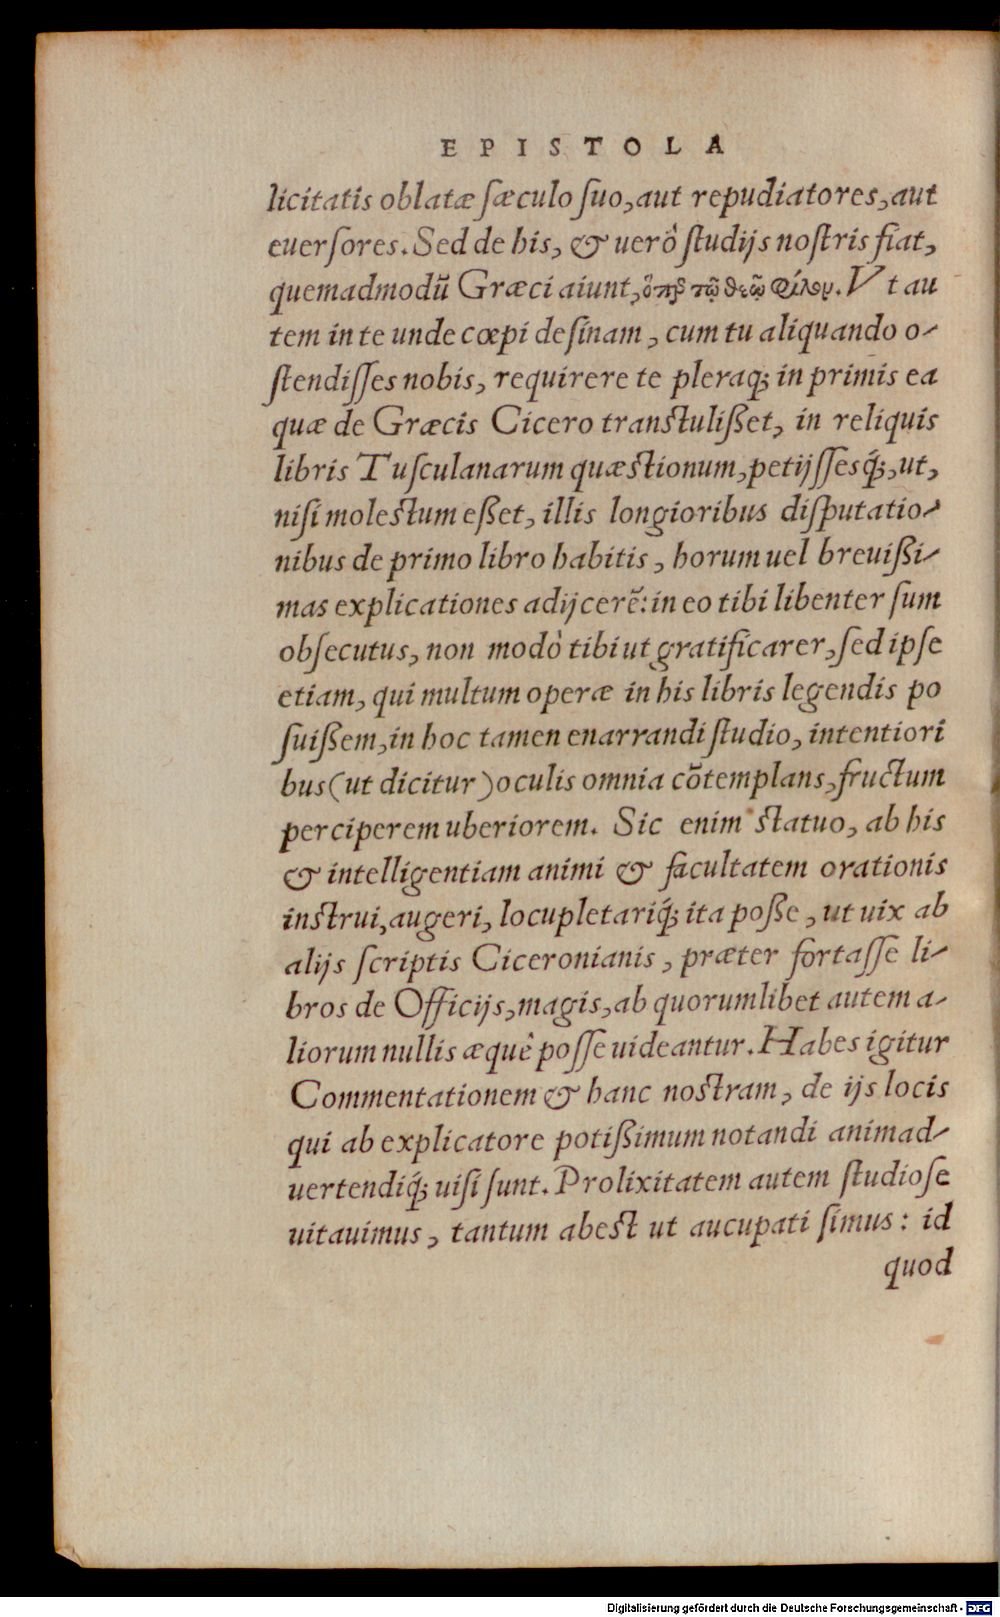 EPISTOLA
licitatis oblatæ ſæculo ſuo, aut repudiatores, aut
euerſores. Sed de his, & uerò ſtudijs noſtris fiat,
quemadmodũ Græci aiunt, ὅπερ τῷ θεῷ φίλον. Vt au
tem in te unde cœpi deſinam, cum tu aliquando o-
ſtendiſſes nobis, requirere te pleraq; in primis ea
quæ de Græcis Cicero tranſtulißet, in reliquis
libris Tuſculanarum quæſtionum, petijſſesq́;, ut,
niſi moleſtum eßet, illis longioribus diſputatio-
nibus de primo libro habitis, horum uel breuißi-
mas explicationes adijcerẽ: in eo tibi libenter ſum
obſecutus, non modò tibi ut gratificarer, ſed ipſe
etiam, qui multum operæ in his libris legendis po
ſuißem, in hoc tamen enarrandi ſtudio, intentiori
bus (ut dicitur) oculis omnia cõtemplans, fructum
perciperem uberiorem. Sic enim ſtatuo, ab his
& intelligentiam animi & facultatem orationis
inſtrui, augeri, locupletariq́; ita poße, ut uix ab
alijs ſcriptis Ciceronianis, præter fortaſſe li-
bros de Officijs, magis, ab quorumlibet autem a-
liorum nullis æquè poſſe uideantur. Habes igitur
Commentationem & hanc noſtram, de ijs locis
qui ab explicatore potißimum notandi animad-
uertendiq́; uiſi ſunt. Prolixitatem autem ſtudioſe
uitauimus, tantum abeſt ut aucupati ſimus: id
quod
Digitalisierung gefördert durch die Deutsche Forschungsgemeinschaft - DFG